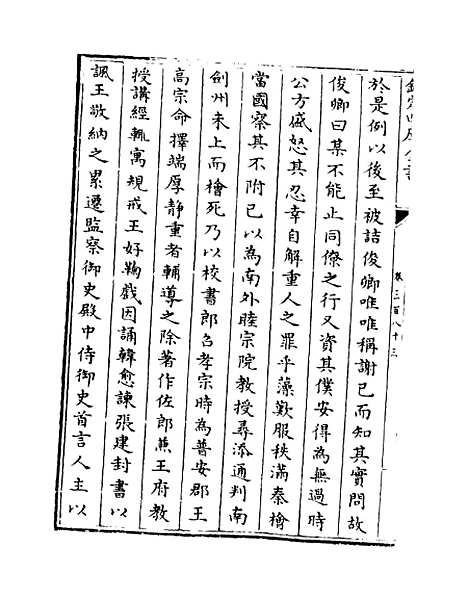 欽定四庫全書
卷三百八十三
於是例以後至被詰俊卿唯唯稱謝已而知其實問故
俊卿曰某不能止同僚之行又資其僕安得為無過時
公方盛怒其忍幸自解重人之罪乎藻歎服秩滿秦檜
當國察其不附己以為南外睦宗院教授尋添通判南
劍州未上而檜死乃以校書郎召孝宗時為普安郡王
高宗命擇端厚靜重者輔導之除著作佐郎兼王府教
授講經輒寓規戒王好鞠戲因誦韓愈諫張建封書以
諷王敬納之累遷監察御史殿中侍御史首言人主以